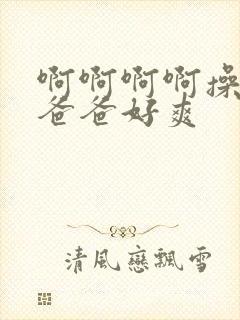 啊啊啊啊操
爸爸好爽
清風戀飄雪